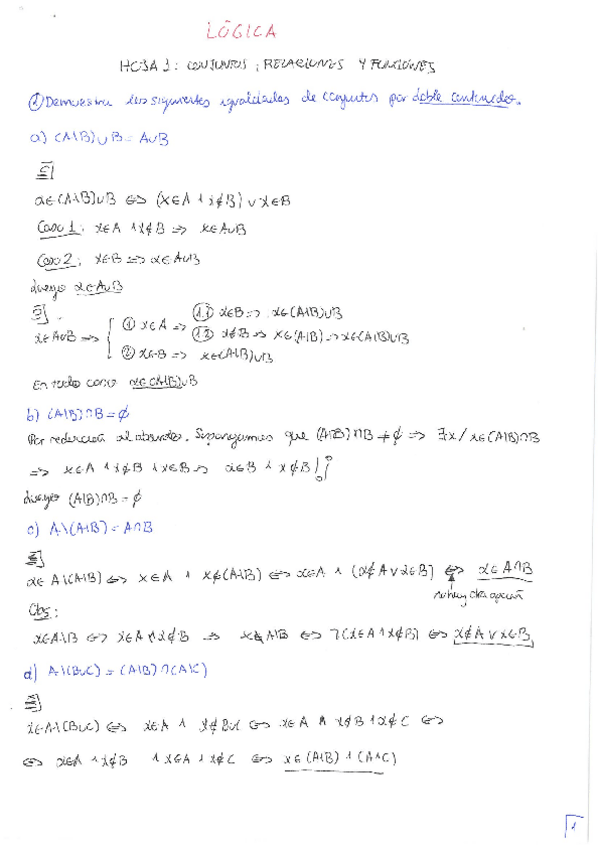 LÓGICA
HOJA 1: CONJUNTOS, RELACIONES Y FUNCIONES
① Demuestra las siguientes igualdades de conjuntos por doble contenido.
a) (A\B)∪B = A∪B
⊆|
x∈(A\B)∪B ⇔ (x∈A ∧ x∉B) ∨ x∈B
Caso 1: x∈A ∧ x∉B ⇒ x∈A∪B
Caso 2: x∈B ⇒ x∈A∪B
Luego x∈A∪B
⊇|
x∈A∪B ⇒ { ① x∈A ⇒ (1.1) x∈B ⇒ x∈(A\B)∪B
(1.2) x∉B ⇒ x∈(A\B) ⇒ x∈(A\B)∪B
② x∈B ⇒ x∈(A\B)∪B
En todo caso x∈(A\B)∪B
b) (A\B)∩B = ∅
Por reducción al absurdo. Supongamos que (A\B)∩B ≠ ∅ ⇒ ∃x / x∈(A\B)∩B
⇒ x∈A ∧ x∉B ∧ x∈B ⇒ x∈B ∧ x∉B !¡
Luego (A\B)∩B = ∅
c) A\(A\B) = A∩B
x∈A\(A\B) ⇔ x∈A ∧ x∉(A\B) ⇔ x∈A ∧ (x∉A ∨ x∈B) ⇔ x∈A∩B
no hay otra opción
Obs:
x∈A\B ⇔ x∈A ∧ x∉B ⇒ x∉A\B ⇔ ¬(x∈A ∧ x∉B) ⇔ x∉A ∨ x∈B
d) A\(B∪C) = (A\B)∩(A\C)
x∈A\(B∪C) ⇔ x∈A ∧ x∉B∪C ⇔ x∈A ∧ x∉B ∧ x∉C ⇔
⇔ x∈A ∧ x∉B ∧ x∈A ∧ x∉C ⇔ x∈(A\B) ∧ (A\C)
1